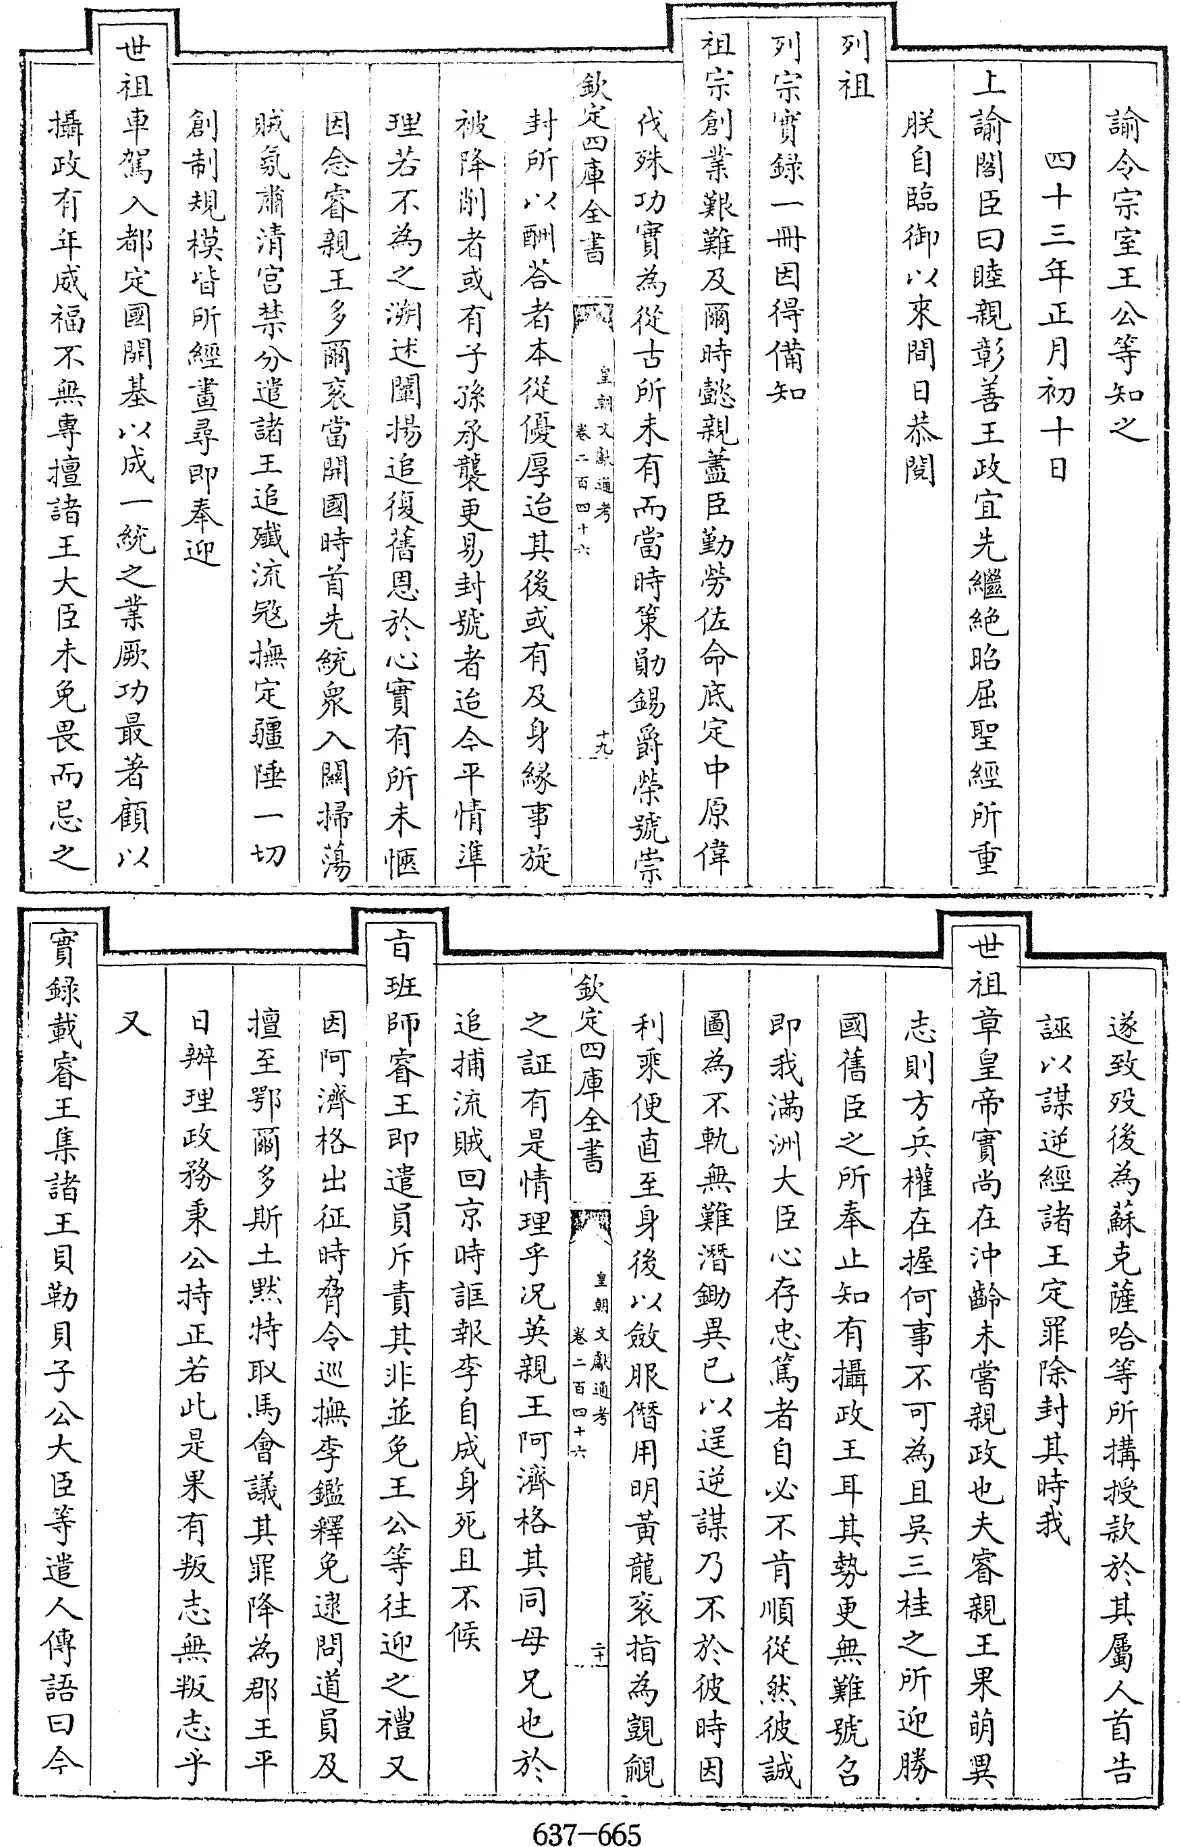 諭令宗室王公等知之
四十三年正月初十日
上諭閣臣曰睦親彰善王政宜先繼絶昭屈聖經所重
朕自臨御以來間日恭閲
列祖
列宗實録一冊因得備知
祖宗創業艱難及爾時懿親藎臣勤勞佐命底定中原偉
伐殊功實為從古所未有而當時策勛錫爵榮號崇
欽定四庫全書
皇朝文獻通考
卷二百四十六
十九
封所以酬荅者本從優厚迨其後或有及身緣事旋
被降削者或有子孫承襲更易封號者迨今平情準
理若不為之溯述闡揚追復舊恩於心實有所未愜
因念睿親王多爾衮當開國時首先統衆入關掃蕩
賊氛肅清宫禁分遣諸王追殲流冦撫定疆陲一切
創制規模皆所經畫尋即奉迎
世祖車駕入都定國開基以成一統之業厥功最著顧以
攝政有年威福不無專擅諸王大臣未免畏而忌之
遂致殁後為蘇克薩哈等所搆授款於其屬人首告
誣以謀逆經諸王定罪除封其時我
世祖章皇帝實尚在沖齡未嘗親政也夫睿親王果萌異
志則方兵權在握何事不可為且吳三桂之所迎勝
國舊臣之所奉止知有攝政王耳其勢更無難號召
即我滿洲大臣心存忠篤者自必不肯順從然彼誠
圖為不軌無難潛鋤異已以逞逆謀乃不於彼時因
利乘便直至身後以斂服僭用明黃龍衮指為覬覦
欽定四庫全書
皇朝文獻通考
卷二百四十六
二十
之証有是情理乎况英親王阿濟格其同母兄也於
追捕流賊回京時誑報李自成身死且不候
㫖班師睿王即遣員斥責其非並免王公等往迎之禮又
因阿濟格出征時脅令巡撫李鑑釋免逮問道員及
擅至鄂爾多斯土黙特取馬會議其罪降為郡王平
日辦理政務秉公持正若此是果有叛志無叛志乎
又
實録載睿王集諸王貝勒貝子公大臣等遣人傳語曰今
637-665